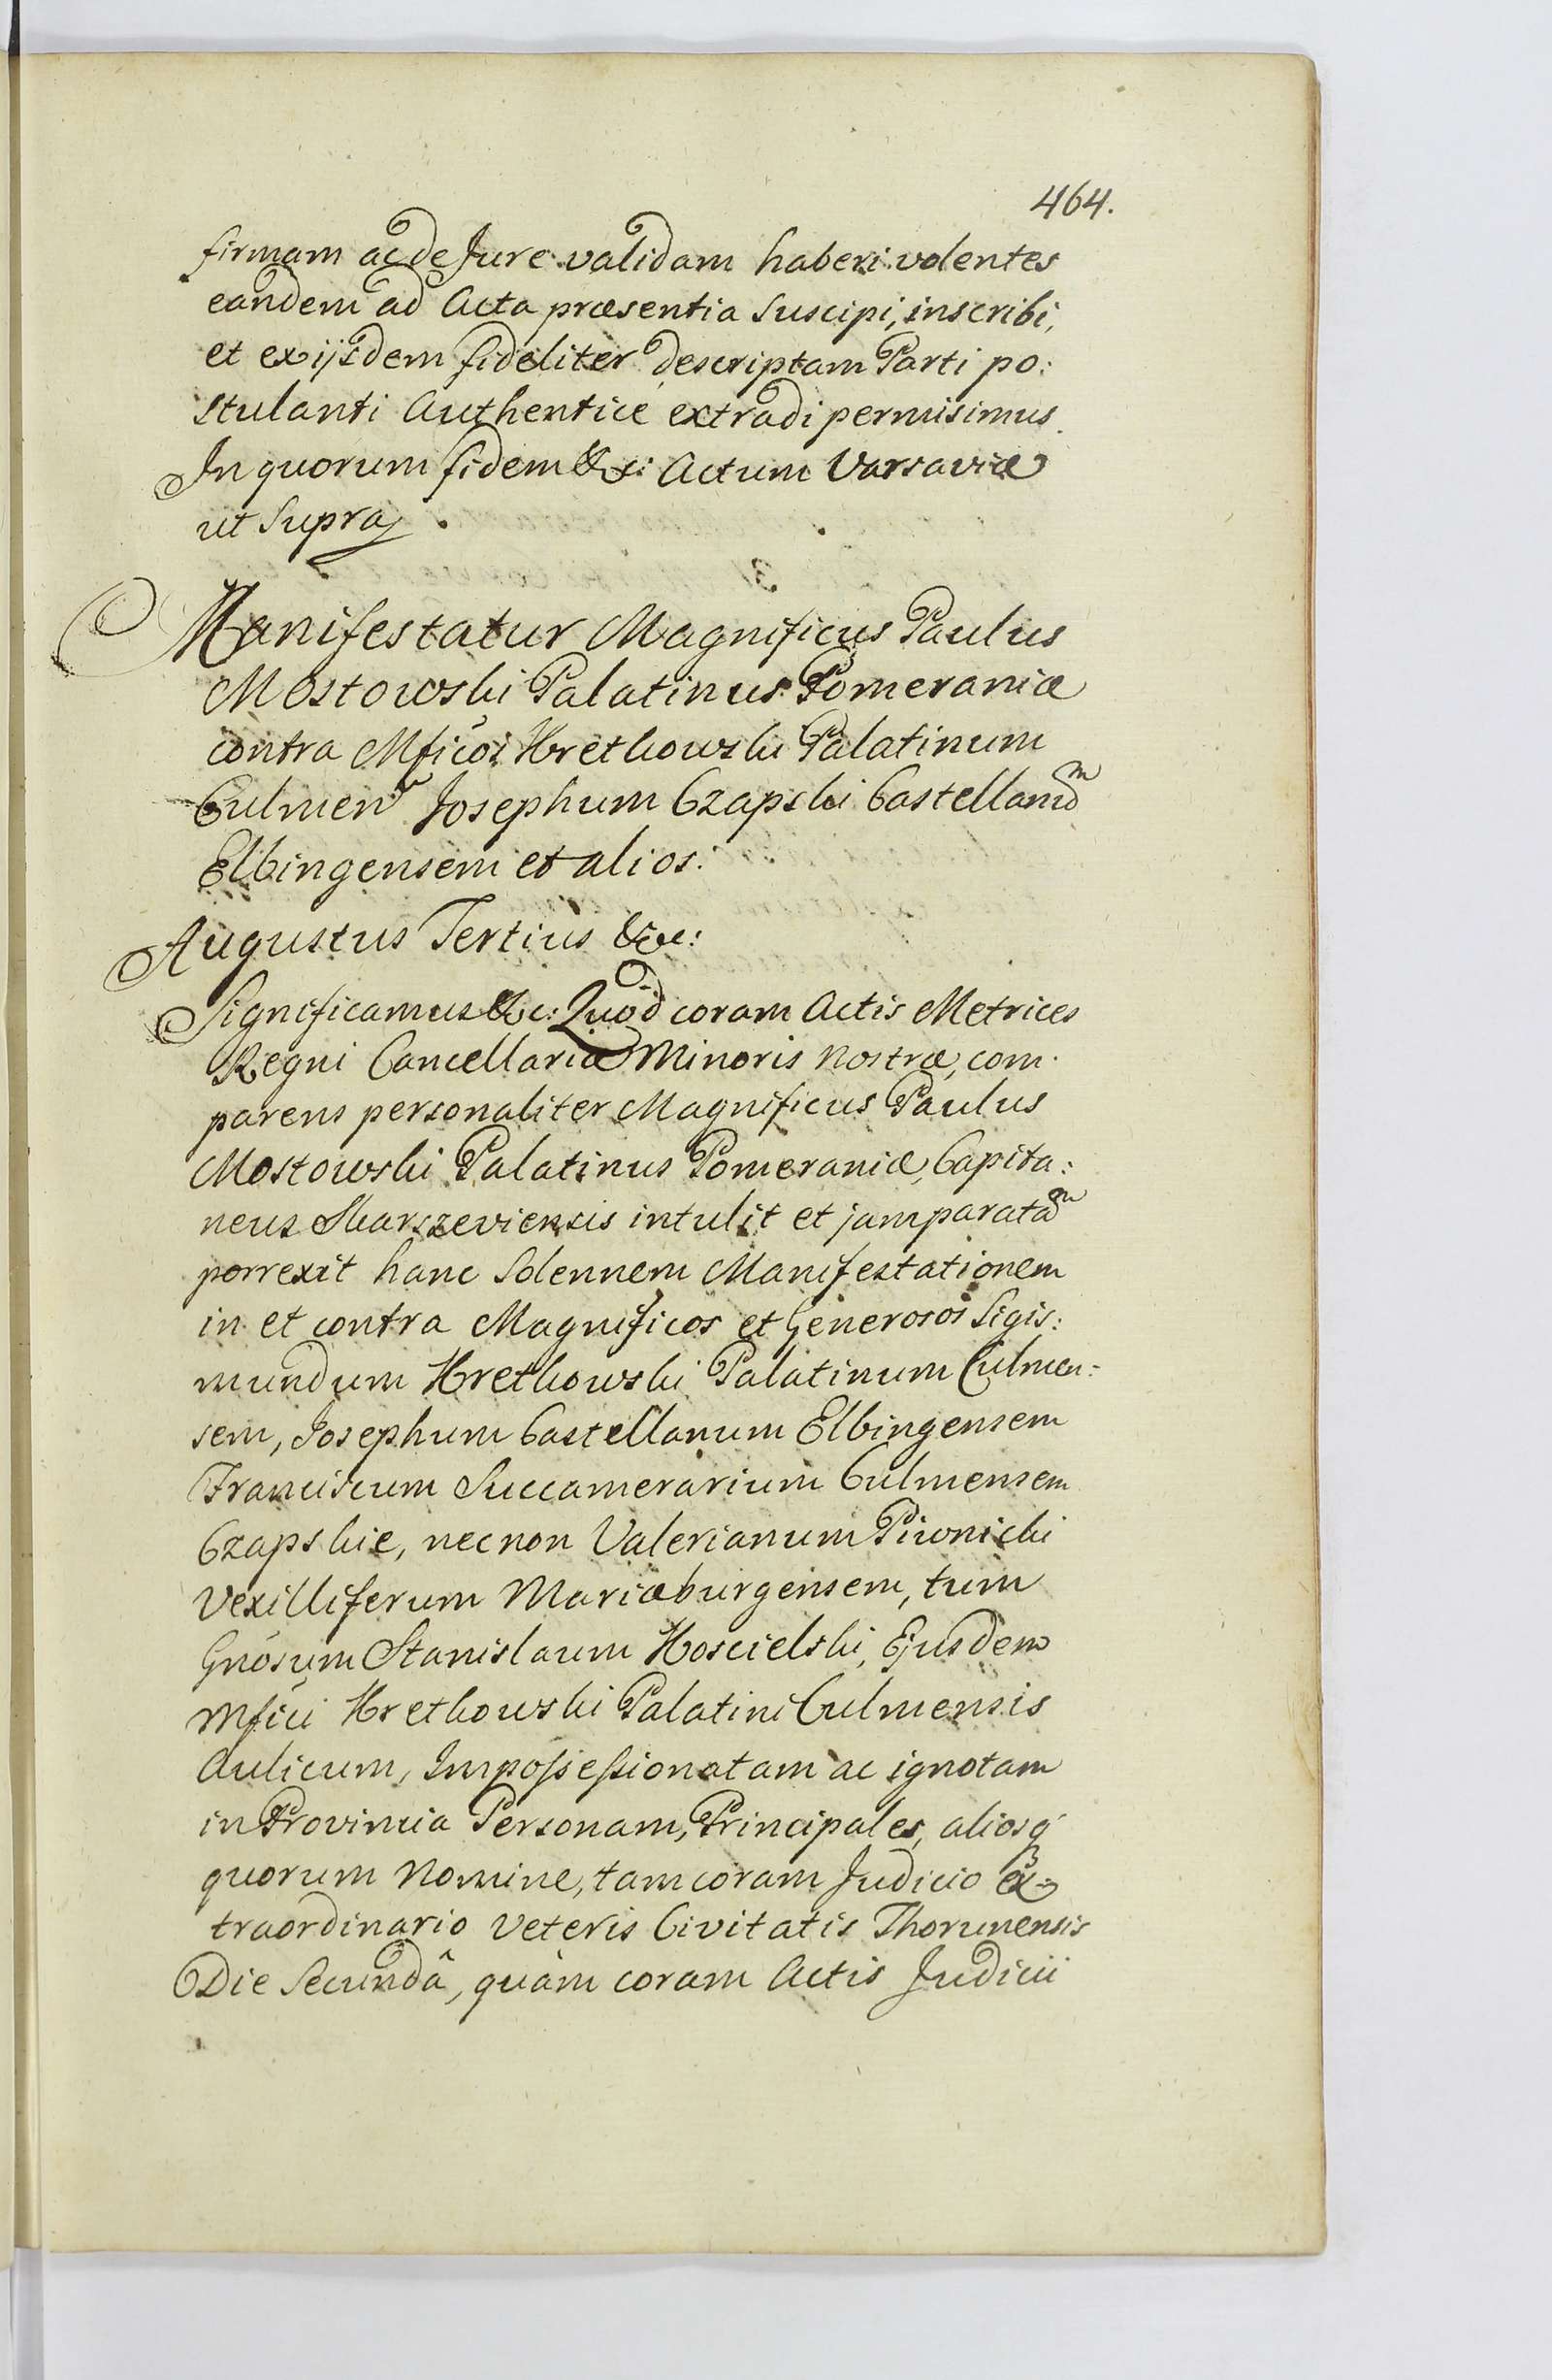 464.
firmam ac de Jure validam haberi volentes
eandem ad Acta præsentia suscipi, inscribi,
et ex ijsdem fideliter descriptam Parti po:
stulanti Authentice extradi permisimus.
In quorum fidem &c: Actum Varsaviæ
ut Supra
Manifestatur Magnificus Paulus
Mostowski Palatinus Pomeraniæ
contra Mficos Kretkowski Palatinum
Culmen Josephum Czapski Castellanum
Elbingensem et alios.
Augustus Tertius &c:
Significamus &c: Quod coram Actis Metrices
Regni Cancellariæ Minoris Nostræ, com.
parens personaliter Magnificus Paulus
Mostowski Palatinus Pomeraniæ, Capita:
neus Skarszeviensis intulit et jam paratam
porrexit hanc Solennem Manifestationem
in et contra Magnificos et Generosos Sigis:
mundum Kretkowski Palatinum Culmen:
sem, Josephum Castellanum Elbingensem
Franciscum Succamerarium Culmensem
Czapskie, necnon Valerianum Piwnicki
Vexilliferum Mariæburgensem, tum
Gnosum Stanislaum Koscielski, Ejusdem
Mfici Kretkowski Palatini Culmensis
Aulicum, Impossessionatam ac ignotam
in Provincia Personam, Principales, aliosq
quorum Nomine, tam coram Judicio Ex
traordinario Veteris Civitatis Thorunensis
Die Secundâ, quàm coram Actis Judicii